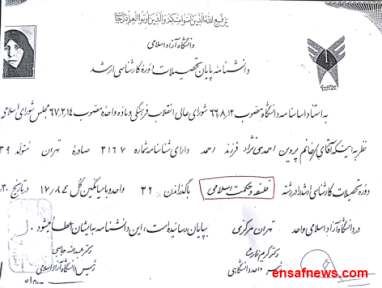 یرفع الله الذین آمنوا منکم والذین اوتوا العلم درجات
دانشگاه آزاد اسلامی
دانشنامه پایان تحصیلات دوره کارشناسی ارشد
به استناد اساسنامه دانشگاه مصوب ۶۶٫۸٫۱۲ شورای عالی انقلاب فرهنگی و ماده واحده مصوب ۶۷٫۲٫۱۴ مجلس شورای اسلامی
نظر به اینکه آقای/خانم پروین احمدی نژاد فرزند احمد دارای شناسنامه شماره ۲۱۶۷ صادره تهران متولد
دوره تحصیلات کارشناسی ارشد را در رشته فلسفه و حکمت اسلامی با گذراندن ۳۲ واحد و با میانگین کل ۱۷٫۸۷ در تاریخ
در دانشگاه آزاد اسلامی واحد تهران مرکزی بپایان رسانیده است، این دانشنامه به ایشان اعطا میشود.
رئیس دانشگاه آزاد اسلامی
ensafnews.com